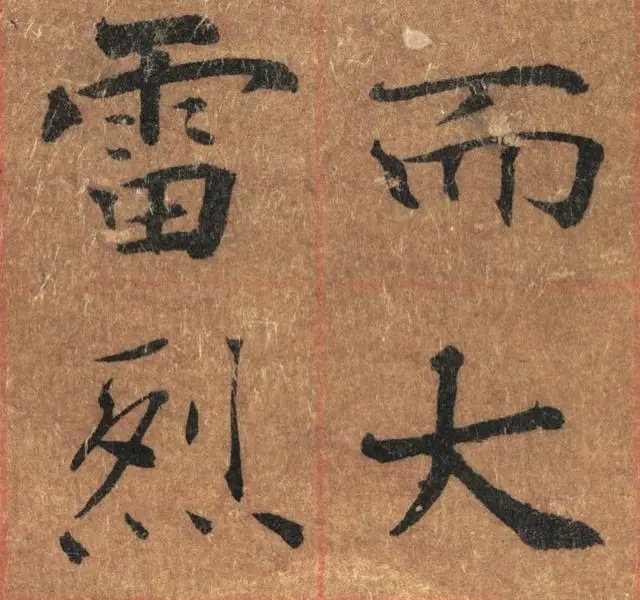 而大
雷烈